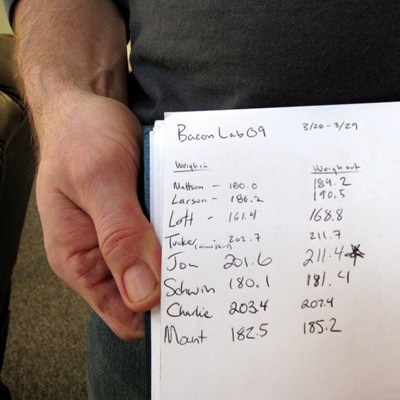 Bacon Lab 09 3/28-3/29
Weigh in Weigh out
Mattson - 180.0 184.2
Larson - 186.2 190.5
Loft - 161.4 168.8
Tucker - 202.7 211.7
Jon 201.6 211.4*
Schwin 180.1 181.4
Charlie 203.4 207.4
Mount 182.5 185.2